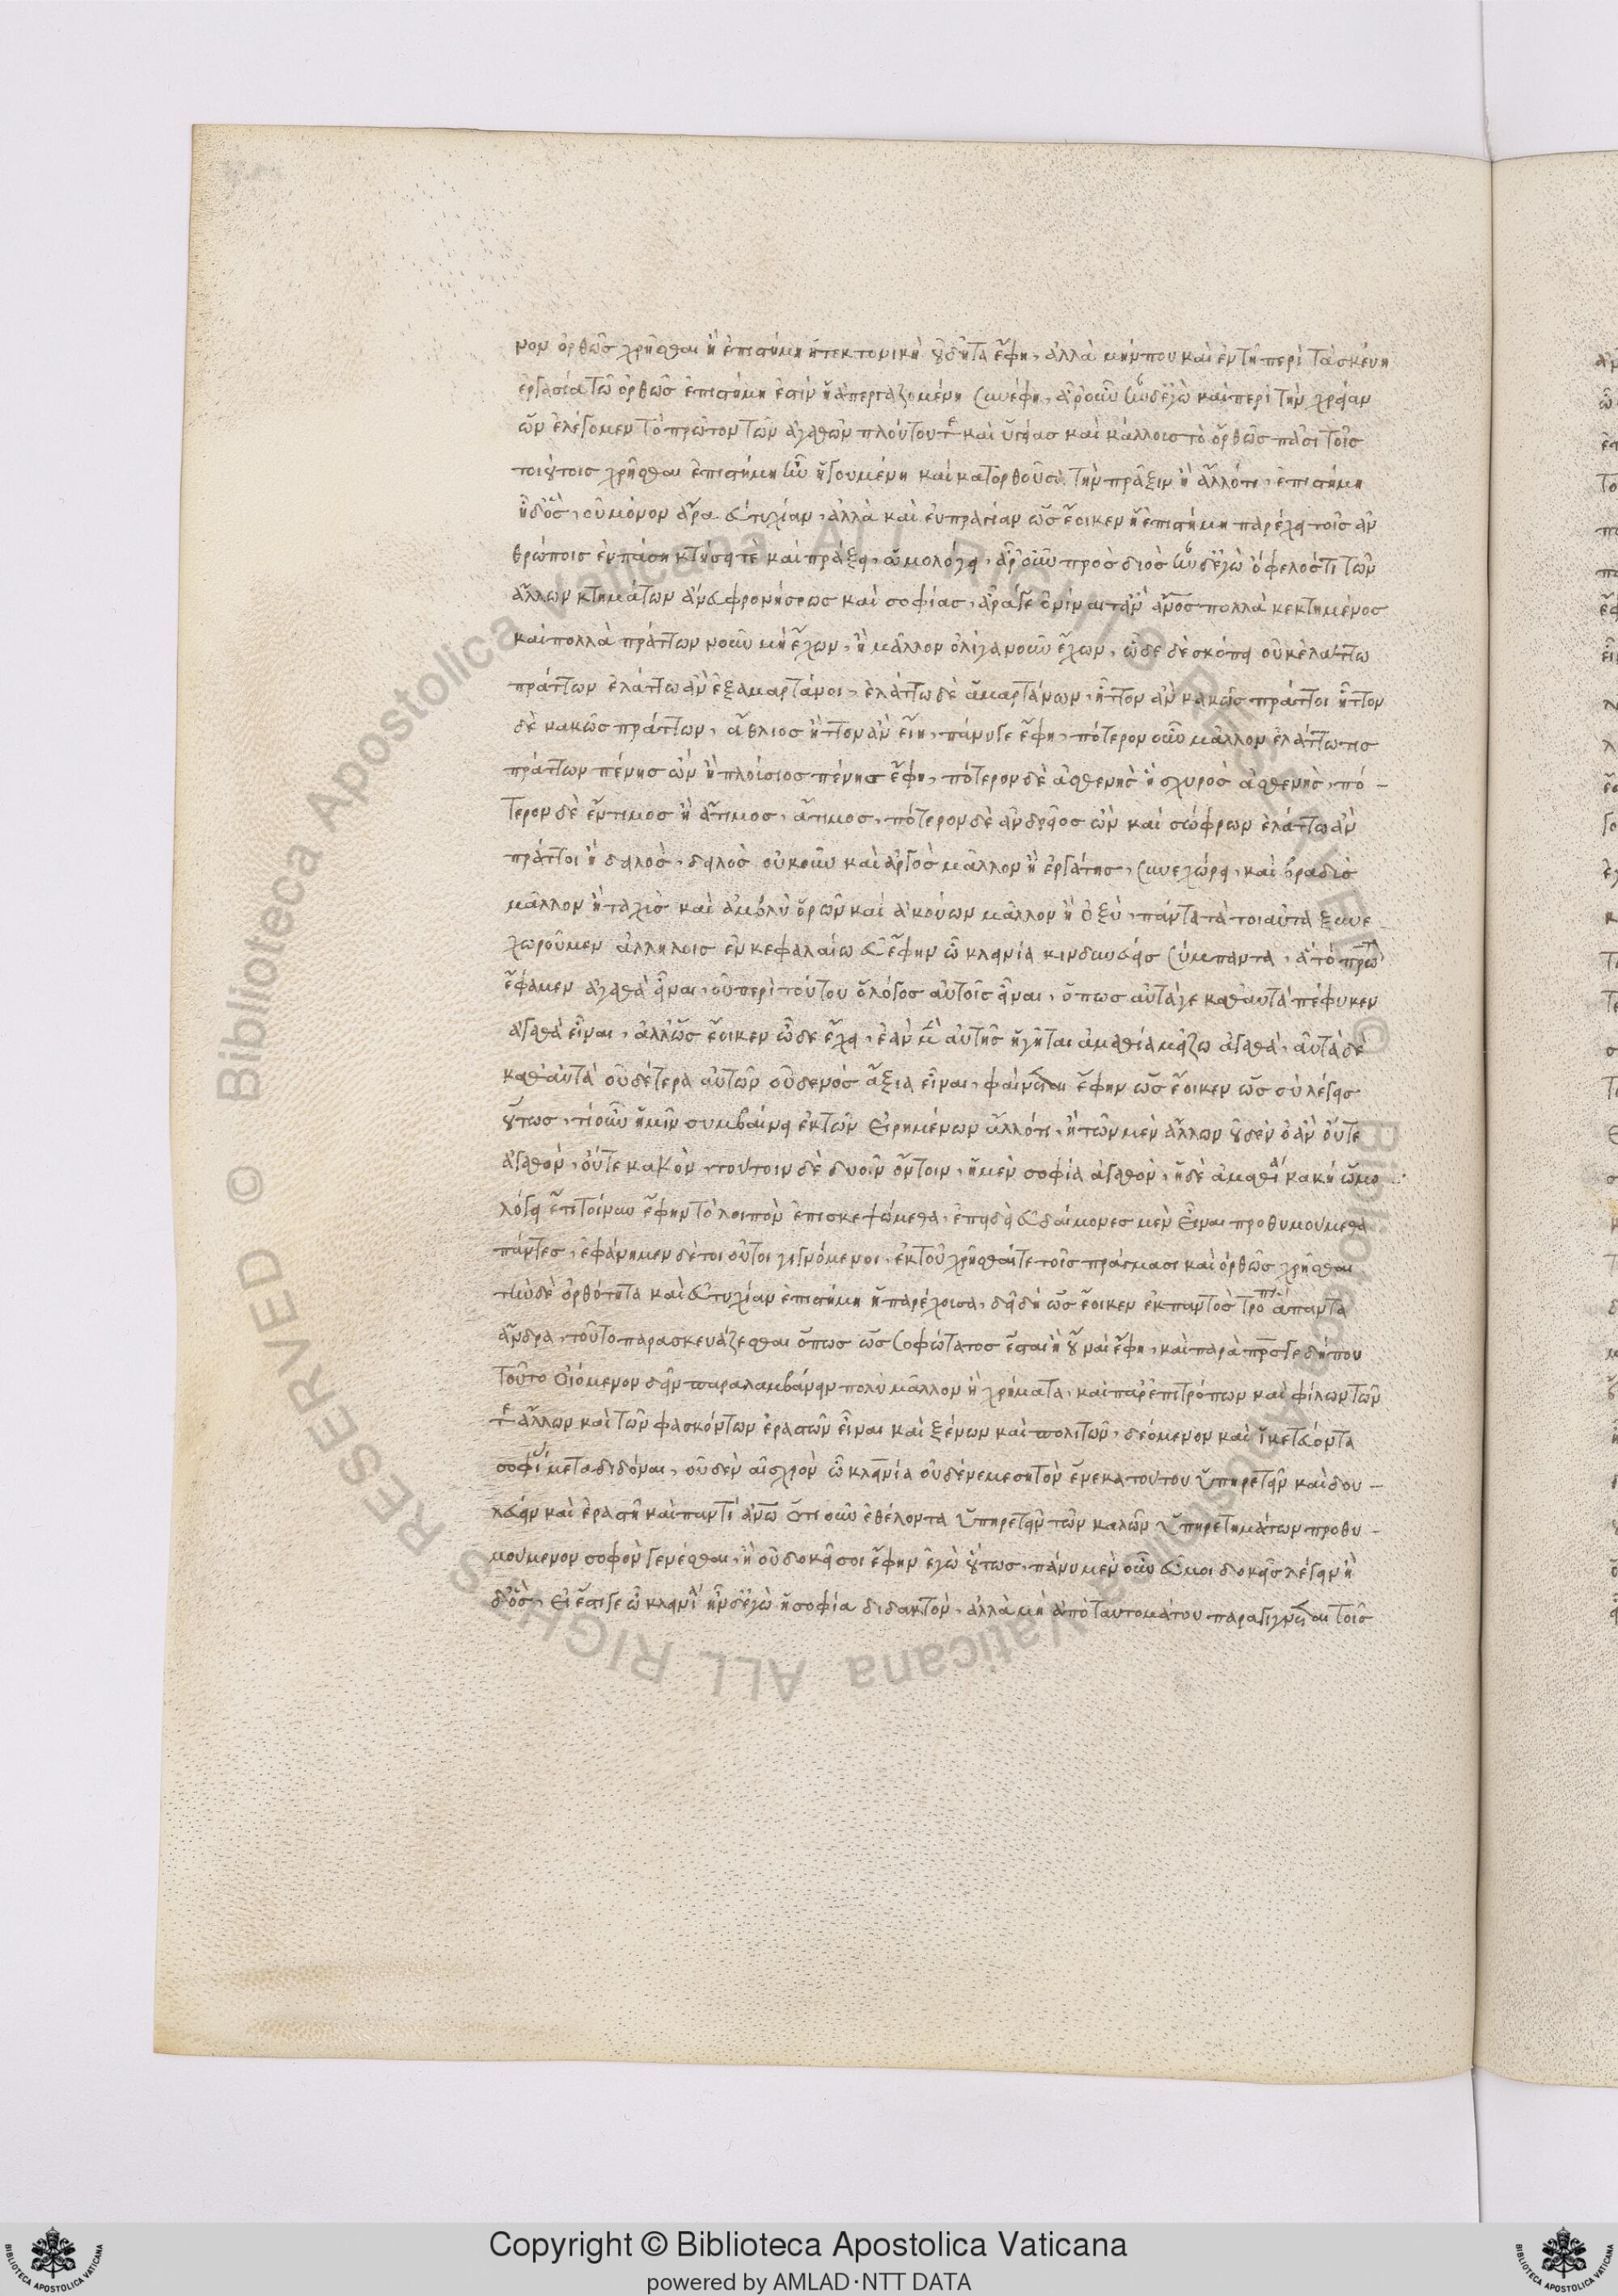 νον ὀρθῶς χρῆσθαι ἢ ἐπιστήμη ἡ τεκτονικὴ οὐ δῆτα ἔφη, ἀλλὰ μήν που καὶ ἐν τῆ περὶ τὰ σκέυη
ἐργασία τῶ ὀρθῶς ἐπιστήμη ἐστὶν ἡ ἀπεργαζομένη συνέφη, ἆρ' οὖν ἦν δ' ἐγὼ καὶ περὶ τὴν χρείαν
ὧν ἐλέγομεν τὸ πρῶτον τῶν ἀγαθῶν πλούτου τε καὶ ὑγιείας καὶ κάλλοις τὸ ὀρθῶς πᾶσι τοῖς
τοιούτοις χρῆσθαι ἐπιστήμη ἦν ἡγουμένη καὶ κατορθοῦσα τὴν πρᾶξιν ἢ ἄλλό τι, ἐπιστήμη
ἦ δ' ὅς, οὐ μόνον ἄρα εὐτυχίαν, ἀλλὰ καὶ ἐυπραγίαν ὡς ἔοικεν ἡ ἐπιστήμη παρέχει τοῖς ἀν
θρώποις ἐν πάση κτήσει τε καὶ πράξει, ὡμολόγει, ἆρ' οὖν πρὸς διὸς ἦν δ' ἐγὼ ὄφελός τι τῶν
ἄλλων κτημάτων ἄνευ φρονήσεως καὶ σοφίας, ἆρά γε ὀνίναιτ' ἂν ἄνος πολλὰ κεκτημένος
καὶ πολλὰ πράττων νοῦν μὴ ἔχων, ἢ μᾶλλον ὀλίγα νοῦν ἔχων, ὧδε δὲ σκόπει οὐκ ἐλάττω
πράττων ἐλάττω ἂν ἐξαμαρτάνοι, ἐλάττω δὲ ἁμαρτάνων, ἧττον ἂν κακῶς πράττοι ἧττον
δὲ κακῶς πράττων, ἄθλιος ἧττον ἂν εἴη, πάνυ γε ἔφη, πότερον οὖν μᾶλλον ἐλάττω τις
πράττων πένης ὢν ἢ πλοίσιος πένης ἔφη, πότερον δὲ ἀσθενὴς ἢ ἰσχυρὸς ἀσθενὴς, πό -
τερον δὲ ἔντιμος ἢ ἄτιμος, ἄτιμος, πότερον δὲ ἀνδρεῖος ὢν καὶ σώφρων ἐλάττω ἂν
πράττοι ἢ δειλὸς, δειλὸς οὐκοῦν καὶ ἀργὸς μᾶλλον ἢ ἐργάτης, συνεχώρει, καὶ βραδὺς
μᾶλλον ἢ ταχὺς καὶ ἀμβλὺ ὁρῶν καὶ ἀκούων μᾶλλον ἢ ὀξὺ, πάντα τὰ τοιαῦτα ξυνε
χωροῦμεν ἀλλήλοις ἐν κεφαλαίω δ' ἔφην ὦ κλεινία κινδυνεύει σύμπαντα, ἃ τὸ πρῶτ
ἔφαμεν ἀγαθὰ εἶναι, οὐ περὶ τούτου ὁ λόγος αὐτοῖς εἶναι, ὅπως αὐτά γε καθ' αὑτὰ πέφυκεν
ἀγαθὰ εἶναι, ἀλλ' ὡς ἔοικεν ὧδε ἔχει, ἐὰν μὲν αὐτῆς ἡγῆται ἀμαθία μείζω ἀγαθὰ, αὐτὰ δὲ
καθ' αὑτὰ οὐδέτερα αὐτῶν οὐδενὸς ἄξια εἶναι, φαίνεται ἔφην ὡς ἔοικεν ὡς σὺ λέγεις
οὕτως, τί οὖν ἡμῖν συμβαίνει ἐκ τῶν εἰρημένων ἄλλό τι, ἢ τῶν μὲν ἄλλων οὐδὲν ὀὰν ὄυτε
ἀγαθὸν, ὄυτε κακὸν, τούτοιν δὲ δυοῖν ὄντοιν, ἡ μὲν σοφία ἀγαθὸν, ἡ δὲ ἀμαθία κακή ὡμο
λόγει ἔτι τοίνυν ἔφην τὸ λοιπὸν ἐπισκεψώμεθα, ἐπειδὴ εὐδαίμονες μὲν εἶναι προθυμούμεθα
πάντες, ἐφάνημεν δὲ τοιοῦτοι γιγνόμενοι, ἐκ τοῦ χρῆσθαί τε τοῖς πράγμασι καὶ ὀρθῶς χρῆσθαι
τὴν δὲ ὀρθότητα καὶ εὐτυχίαν ἐπιστήμη ἡ παρέχοισα, δεῖ δὴ ὡς ἔοικεν ἐκ παντὸς τρόπ ἅπαντα
ἄνδρα, τοῦτο παρασκευάζεσθαι ὅπως ὡς σοφώτατος ἔσται ἢ οὔ ναί ἔφη, καὶ παρὰ πρς γε δήπου
τοῦτο οἰόμενον δεῖν παραλαμβάνειν πολὺ μᾶλλον ἢ χρήματα, καὶ παρ' ἐπιτρόπων καὶ φίλων τῶν
τε ἄλλων καὶ τῶν φασκόντων ἐραστῶν εἶναι καὶ ξένων καὶ πολιτῶν, δεόμενον καὶ ἱκετεύοντα
σοφί μεταδιδόναι, οὐδὲν αἰσχρὸν ὦ κλεινία οὐδὲ νεμεσητὸν ἕνεκα τούτου ὑπηρετεῖν καὶ δου -
λεύειν καὶ ἐραστῆ καὶ παντὶ ἀνω ὁτιοῦν ἐθέλοντα ὑπηρετεῖν τῶν καλῶν ὑπηρετημάτων προθυ -
μούμενον σοφὸν γενέσθαι, ἢ οὐ δοκεῖ σοι ἔφην ἐγὼ οὕτως, πάνυ μὲν οὖν εὖ μοι δοκεῖς λέγειν ἦ
δ' ὅς, εἰ ἔστι γε ὦ κλεινί ἦν δ' ἐγὼ ἡ σοφία διδακτὸν, ἀλλὰ μὴ ἀπὸ ταυτομάτου παραγίγνεται τοῖς